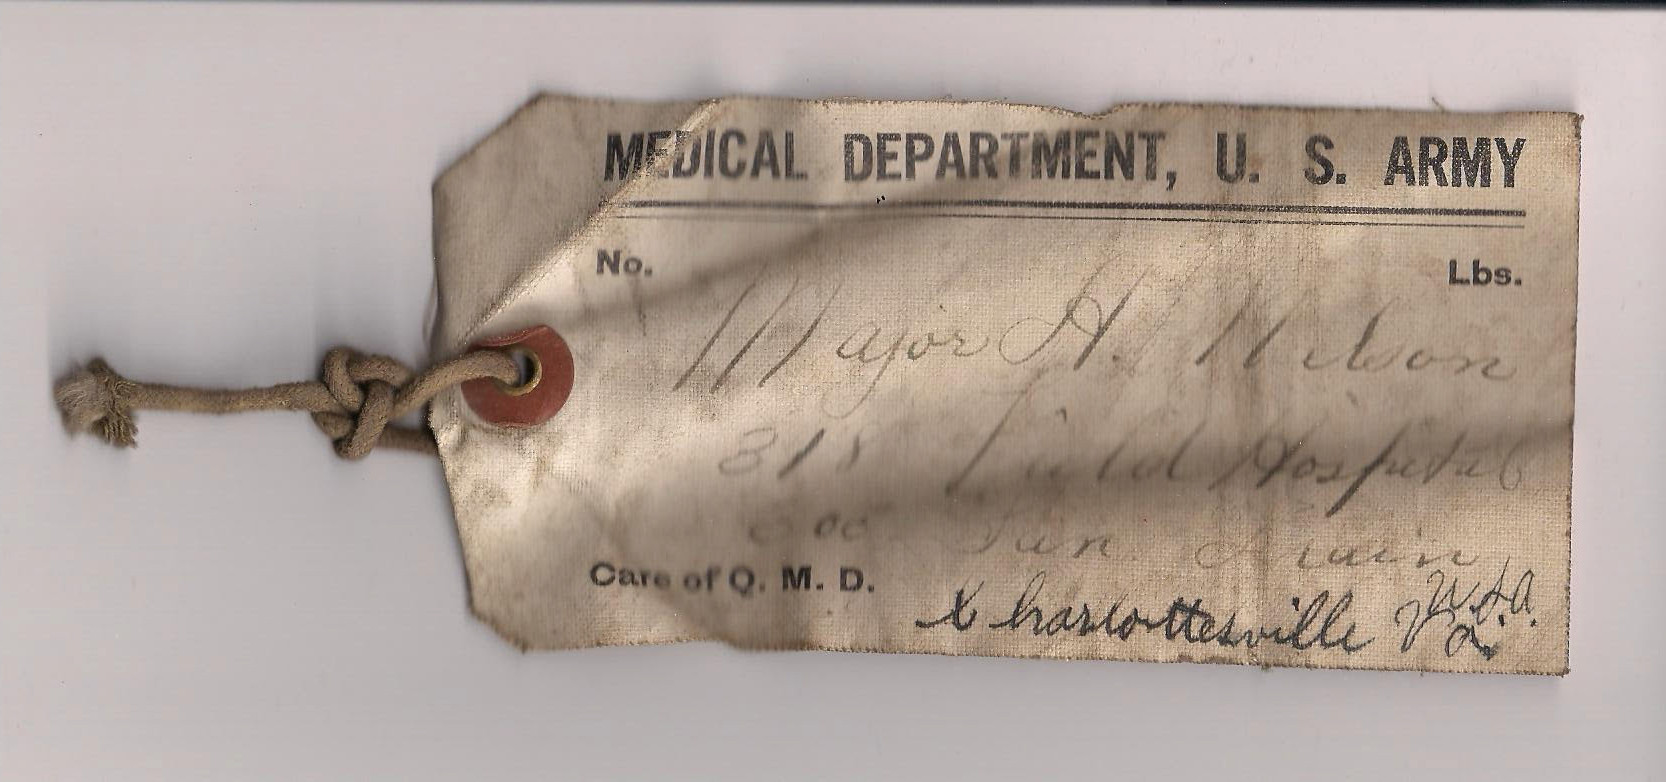 MEDICAL DEPARTMENT, U. S. ARMY
No. Lbs.
Major H. Wilson
318 Field Hospital
305 San. Train
Care of Q. M. D.
Charlottesville Va.